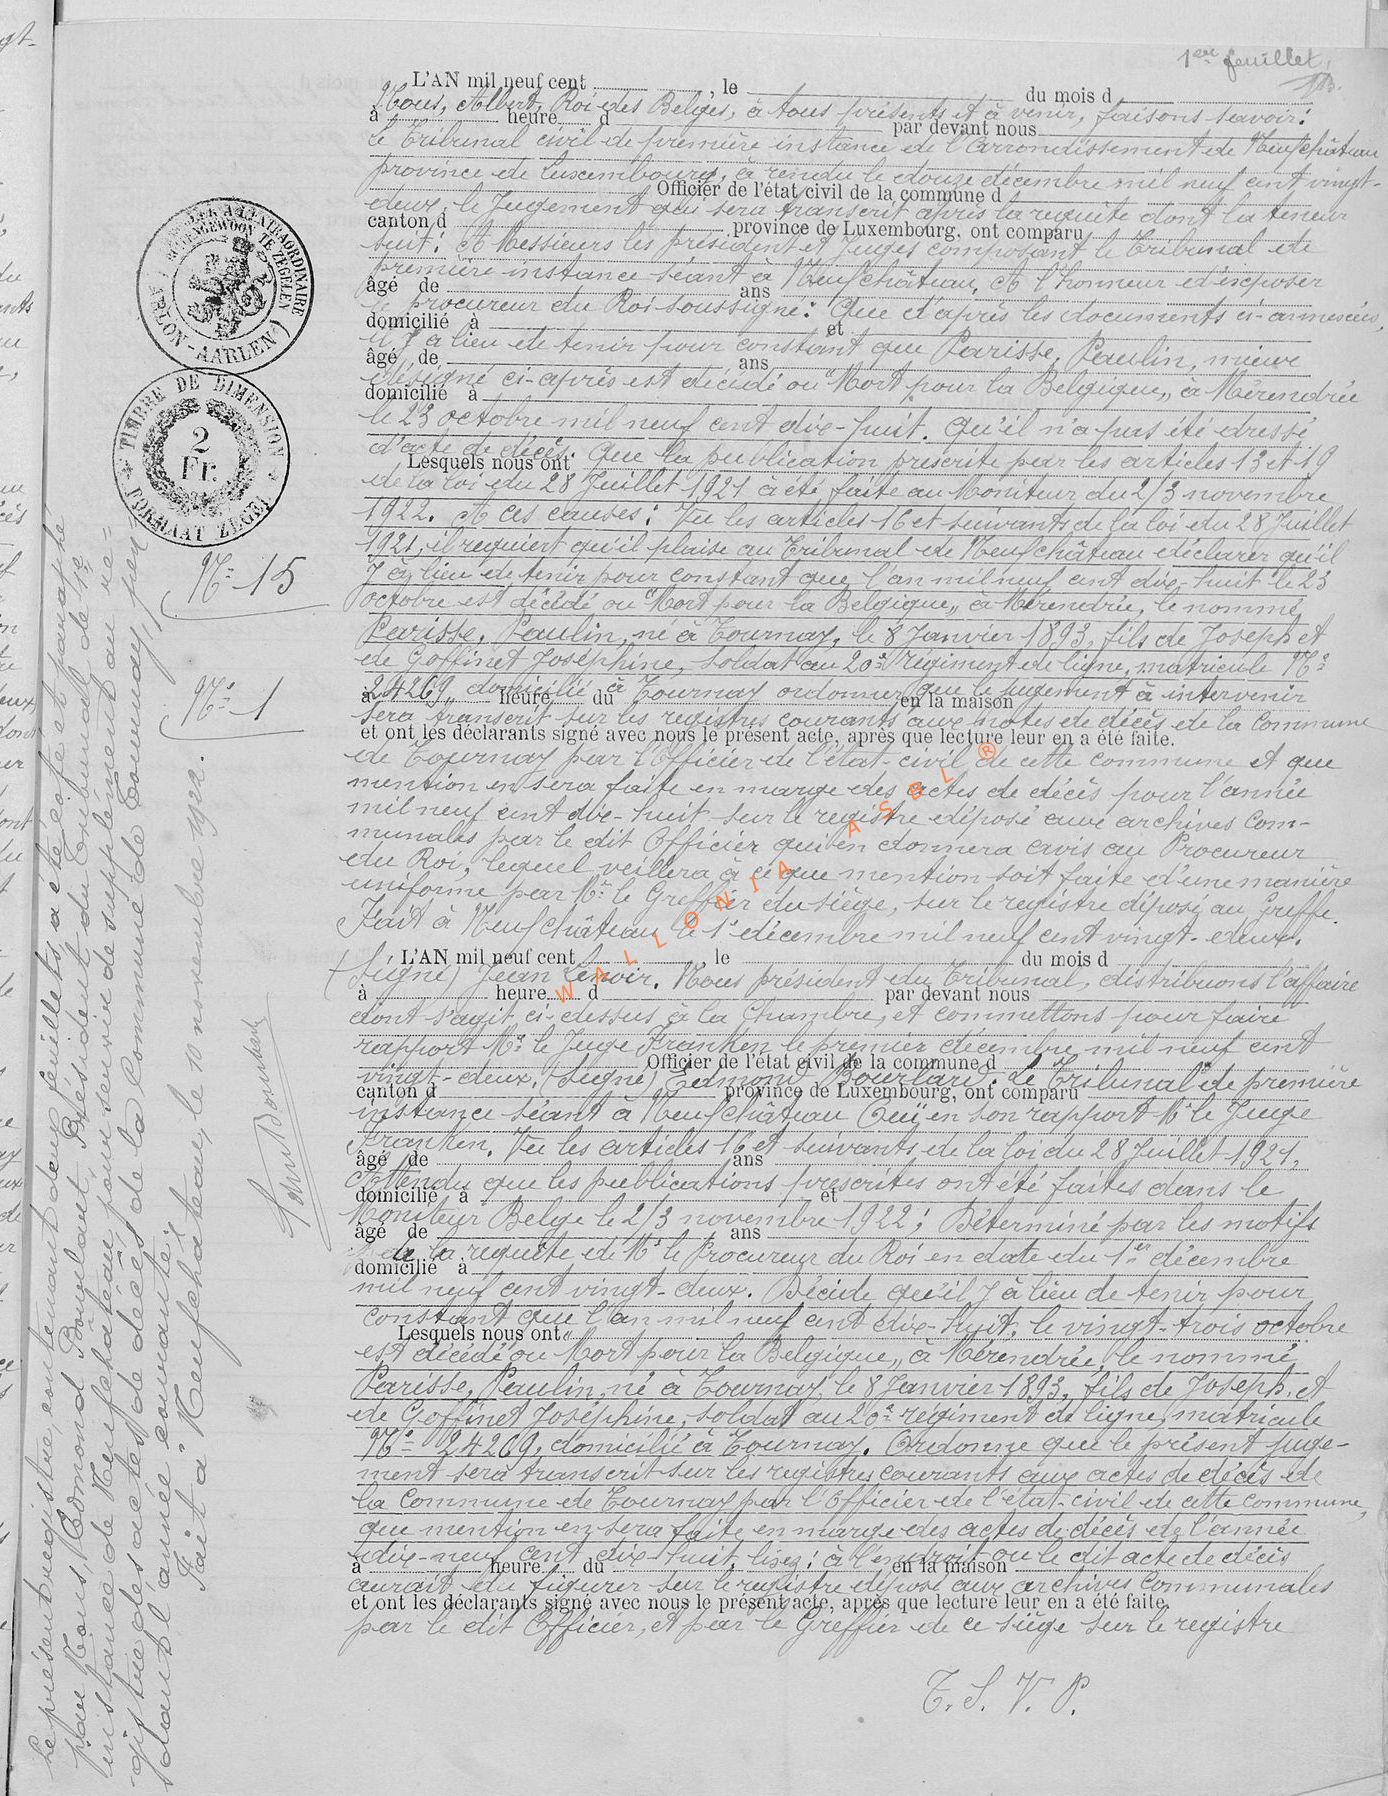 1er feuillet.
L'AN mil neuf cent , le du mois d
Nous, Albert, Roi des Belges, à tous présents et à venir, faisons savoir:
à heure d par devant nous
le Tribunal civil de première instance de l'arrondissement de Neufchâteau
province de Luxembourg, à rendu le douze décembre mil neuf cent vingt-
Officier de l'état civil de la commune d
deux, le Jugement qui sera transcrit après la requête dont la teneur
canton d , province de Luxembourg, ont comparu
suit: A Messieurs les président et Juges composant le Tribunal de
première instance séant à Neufchâteau, A l'honneur d'exposer
âgé de ans
le procureur du Roi soussigné: Que d'après les documents ci-annexés,
domicilié à et
il y a lieu de tenir pour constant que Parisse, Paulin, mieux
âgé de ans
désigné ci-après est décédé ou "Mort pour la Belgique" à Mérendrée
domicilié à
le 23 octobre mil neuf cent dix-huit. Qu'il n'a pas été dressé
d'acte de décès. Que la publication prescrite par les articles 13 et 19
Lesquels nous ont
de la loi du 28 Juillet 1921 à été faite au Moniteur du 2/3 novembre
1922. A ces causes: Vu les articles 16 et suivants de la loi du 28 Juillet
1921, il requiert qu'il plaise au Tribunal de Neufchâteau déclarer qu'il
y à lieu de tenir pour constant que l'an mil neuf cent dix-huit le 23
octobre est décédé ou "Mort pour la Belgique" à Mérendrée, le nommé
Parisse, Paulin, né à Tournay, le 8 Janvier 1893, fils de Joseph et
de Goffinet Joséphine, soldat au 20e régiment de ligne, matricule No
24269, domicilié à Tournay ordonner que le jugement à intervenir
à heure du en la maison
sera transcrit sur les registres courants aux notes de décès de la Commune
et ont les déclarants signé avec nous le présent acte, après que lecture leur en a été faite.
de Tournay par l'Officier de l'état-civil de cette commune et que
mention en sera faite en marge des actes de décès pour l'année
mil neuf cent dix-huit sur le registre déposé aux archives Com-
munales par le dit Officier qui en donnera avis au Procureur
du Roi, lequel veillera à ce que mention soit faite d'une manière
uniforme par Mr. le Greffier du siège, sur le registre déposé au Greffe.
Fait à Neufchâteau le 1er décembre mil neuf cent vingt-deux.
L'AN mil neuf cent , le du mois d
(Signé) Jean Lenoir. Nous président du Tribunal, distribuons l'affaire
à heure d par devant nous
dont s'agit ci-dessus à la Chambre, et commettons pour faire
rapport Mr. le Juge Franken le premier décembre mil neuf cent
Officier de l'état civil de la commune d
vingt-deux. (Signé) Edmond Bourlard. Le Tribunal de première
canton d province de Luxembourg, ont comparu
instance séant à Neufchâteau Ouï en son rapport Mr le Juge
Franken. Vu les articles 16 et suivants de la loi du 28 Juillet 1921,
âgé de ans
Attendu que les publications prescrites ont été faites dans le
domicilié à et
Moniteur Belge le 2/3 novembre 1922; Déterminé par les motifs
âgé de ans
de la requête de Mr le Procureur du Roi en date du 1er décembre
domicilié à
mil neuf cent vingt-deux. Décide qu'il y à lieu de tenir pour
constant que l'an mil neuf cent dix-huit, le vingt-trois octobre
Lesquels nous ont
est décédé ou "Mort pour la Belgique" à Mérendrée, le nommé
Parisse, Paulin, né à Tournay, le 8 Janvier 1893, fils de Joseph, et
de Goffinet Joséphine, soldat au 20e régiment de ligne, matricule
No 24269, domicilié à Tournay. Ordonne que le présent juge-
ment sera transcrit sur les registres courants aux actes de décès de
la Commune de Tournay par l'Officier de l'état-civil de cette commune,
que mention en sera faite en marge des actes de décès de l'année
dix-neuf cent dix-huit, lisez: à l'endroit ou le dit acte de décès
à heure du en la maison
aurait du figurer sur le registre déposé aux archives Communales
et ont les déclarants signé avec nous le présent acte, après que lecture leur en a été faite.
par le dit Officier, et par le Greffier de ce siège sur le registre
T. S. V. P.
(ARLON-AARLEN)
TIMBRE DE DIMENSION
2
Fr.
FORMAAT ZEGEL
No 15
No 1
Le présent registre, contenant deux feuillets a été coté et paraphé
par Nous, Edmond Bourlard, Président du Tribunal de 1re
instance de Neufchâteau, pour servir de supplément au re-
gistre des actes de décès de la Commune de Tournay, pen-
dant l'année courante.
Fait à Neufchâteau, le 10 novembre 1922.
WALLONIA ASBL ®